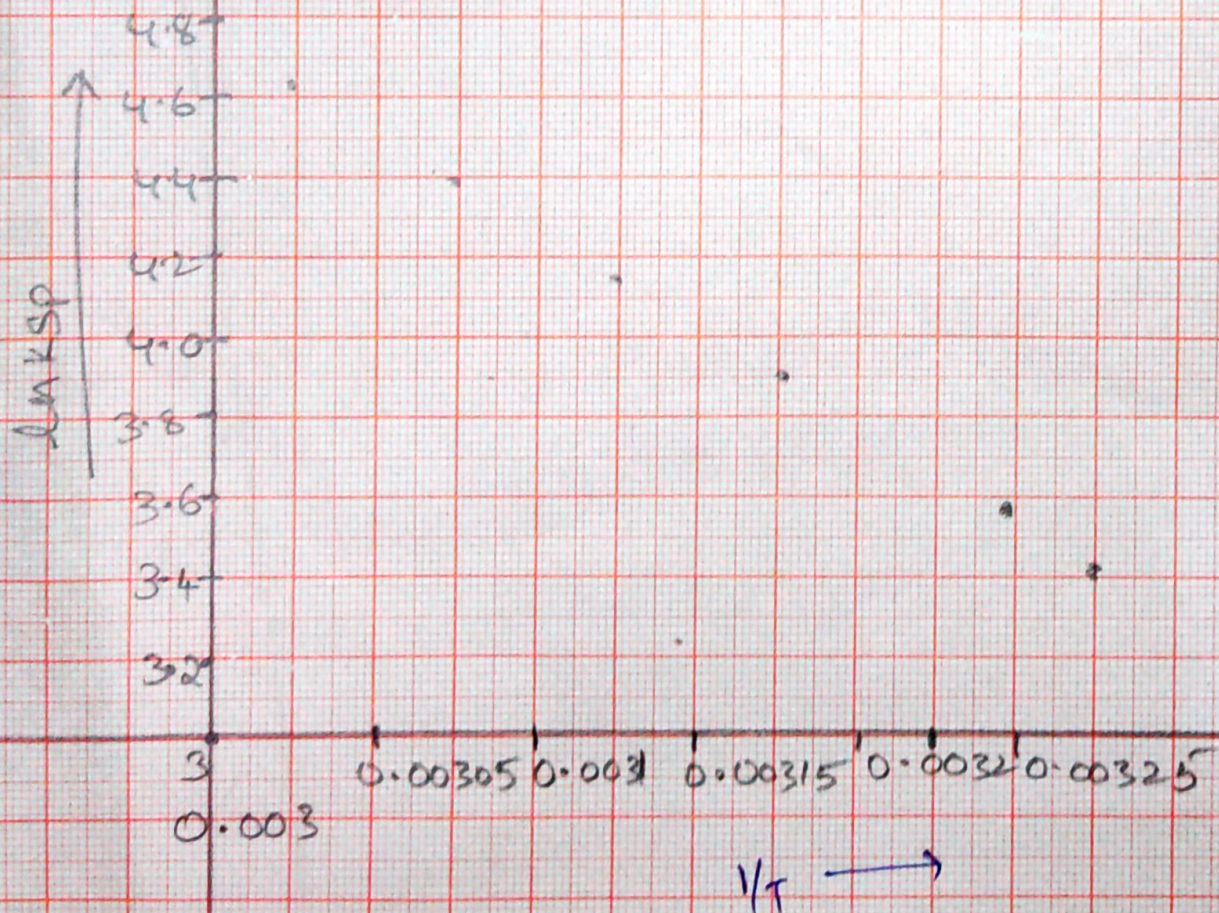 4.8
4.6
4.4
4.2
4.0
3.8
3.6
3.4
3.2
ln KSp
3
0.00305 0.0031 0.00315 0.0032 0.00325
0.003
1/T